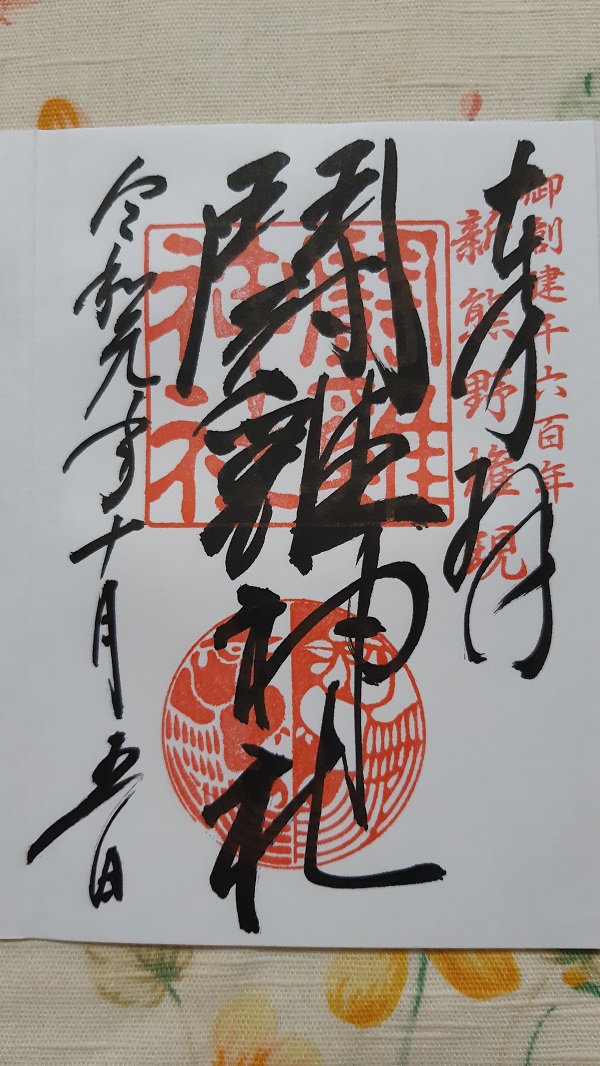 御創建千六百年
新熊野権現
奉拝
闘雞神社
闘雞神社
令和元年十月五日